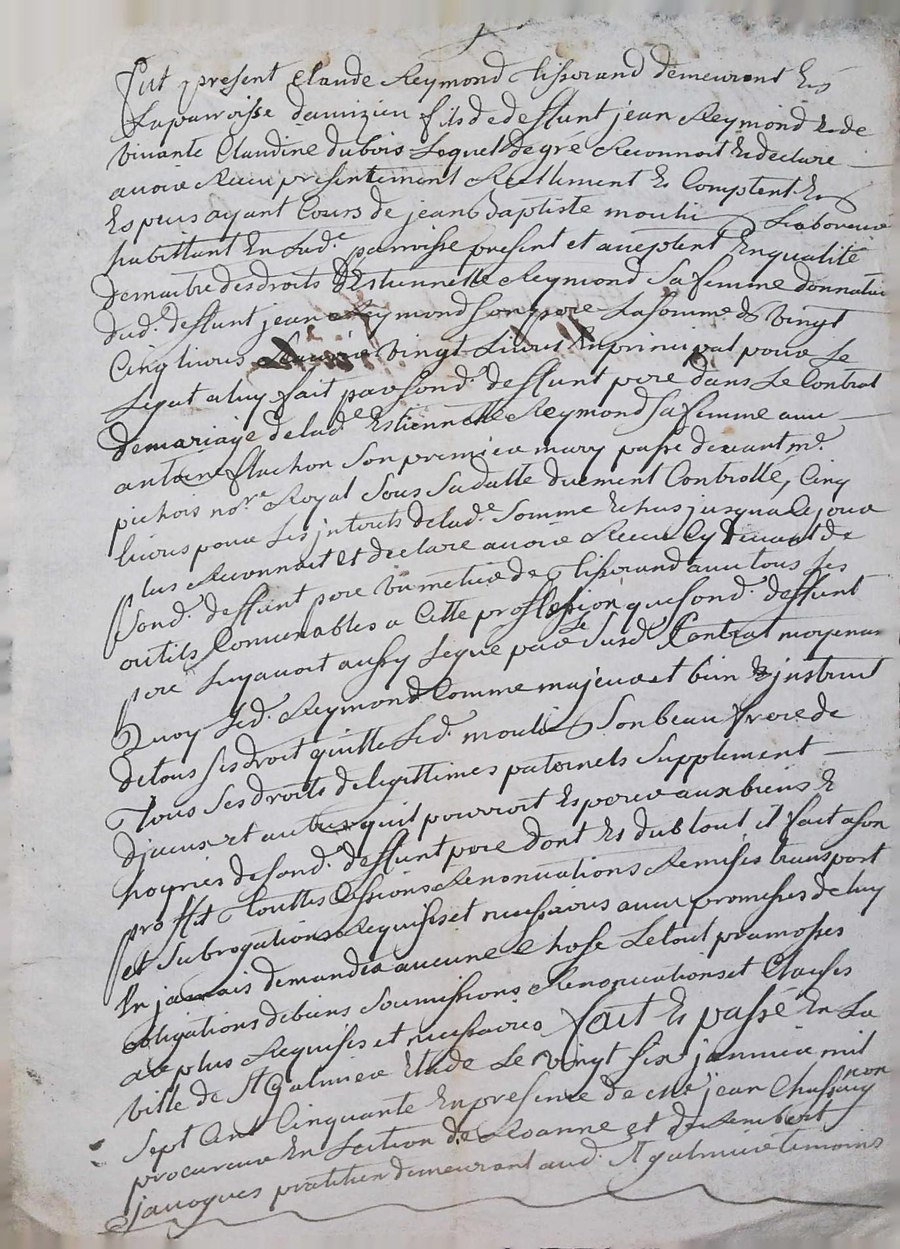 Fut present Claude Reymond tisserand demeurant En
La parroisse daveizieu fils de deffunt jean Reymond et de
vivante Claudine dubois Lequel de gré Reconnoit et declare
avoir Receu presentement Reellement Et Comptent En
Espeus ayant Cours de jean baptiste moulin Laboreur
habittant En Lad.e parroisse present et acceptent En qualité
de maitre des droits d'Estiennette Reymond Sa femme donnatrice
dud. deffunt jean Reymond Son pere La Somme de Vingt
Cinq livres vingt Livres En principal pour Le
Legat a luy fait par Son d. deffunt pere dans Le Contrat
de mariage de lad.e Estiennette Reymond Sa femme avec
antoine flachon Son premier mary passé devant m.e
pichois no.re Royal Sous Sa datte duement Controllé, Cinq
livres pour Les jnterets de lad.e Somme Echus jusqua Ce jour
plus Reconnoit et declare avoir Receu Cy devant de
Sond. deffunt pere un metier de tisserand avec tous Ses
outils Convenables a Cette proffession que Sond. deffunt
pere Luy avoit aussy Legué par Le Susd. Contrat moyenant
Quoy Led. Reymond Comme majeur et bien Et jnstruit
de tous Ses droit quitte Led. moulin Son beau frere de
Tous Ses droits de legittimes paternels Supplement
d'jceux et autres quil pourroit Esperer aux biens Et
hoyries de Sond. deffunt pere dont Et du tout il fait a Son
proffit touttes Cessions Renonciations Remises transport
et Subrogations Requises et necessaires avec promesses de luy
En jamais demander aucune Chose Le tout par mosses
obligations de biens Soumissions Renonciations et Clauses
au plus Requises et necessaires fait Et passé En La
ville de St Galmier Etude Le Vingt Six janvier mil
Sept Cent Cinquante En presence de me jean Chassaignon
procureur En Lection de Roanne et de Lembert
javogues pratitien demeurant aud. St galmier temoins